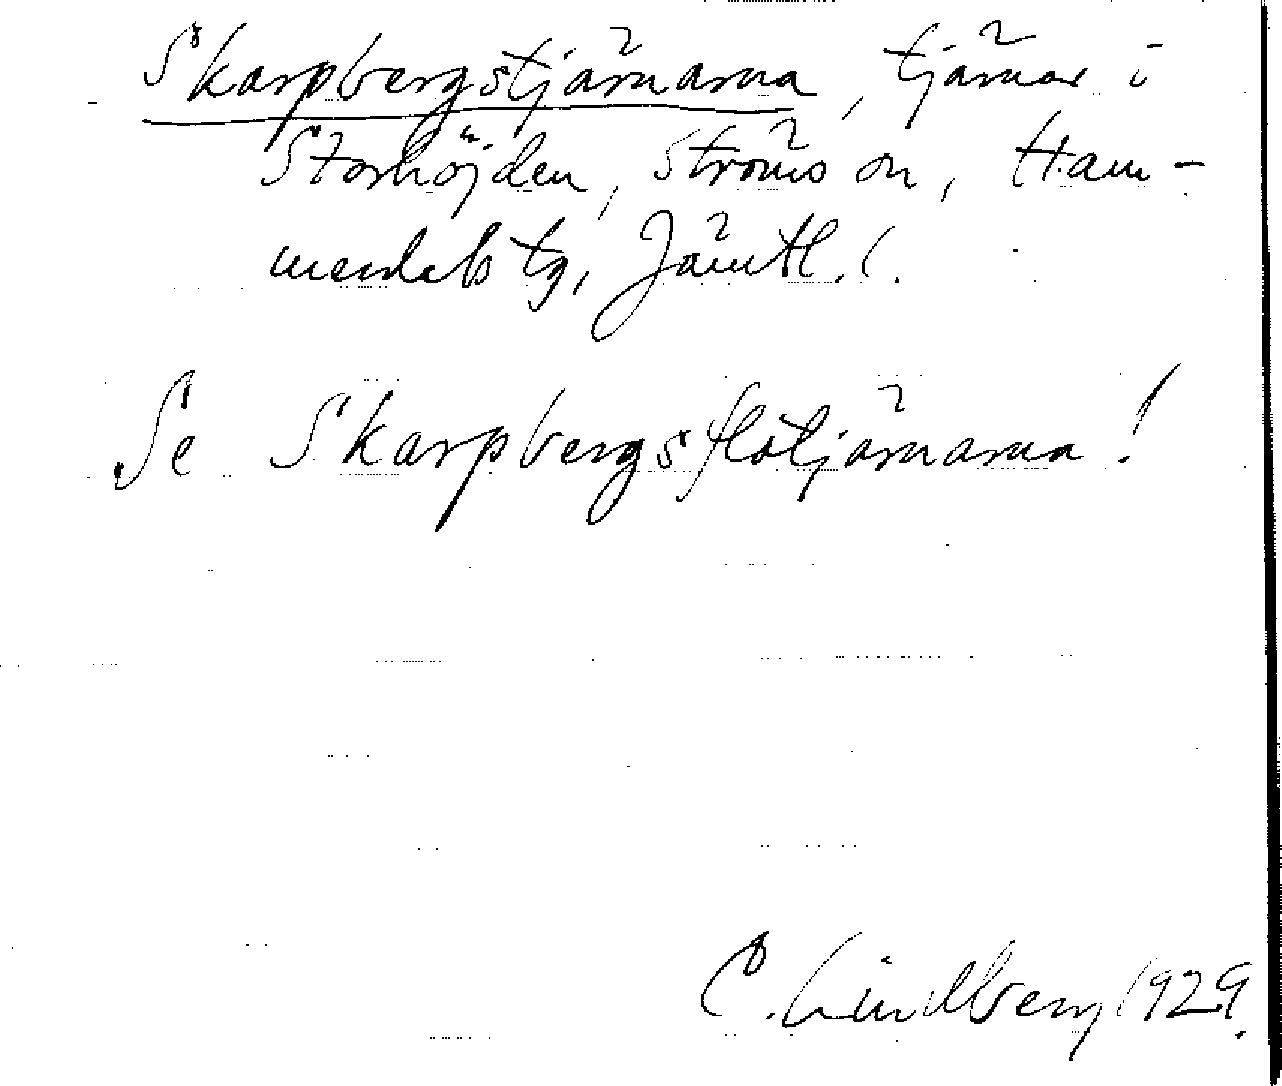 Skarpbergstjärnarna, tjärnar i
Storhöjden, Ströms sn, Ham-
merdals tg, Jämtl. l.
Se Skarpbergsflotjärnarna!
C. Lindberg 1929.